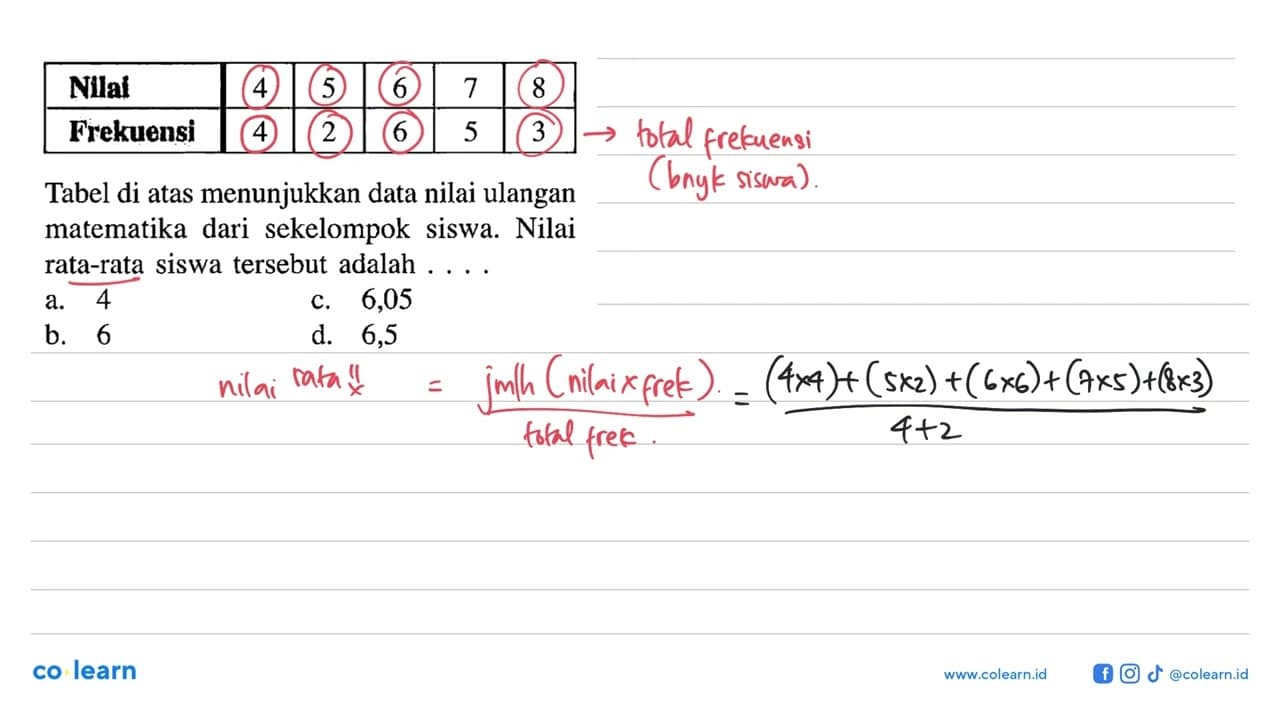 Nilai 4 5 6 7 8
Frekuensi 4 2 6 5 3 → total frekuensi
(bnyk siswa).
Tabel di atas menunjukkan data nilai ulangan
matematika dari sekelompok siswa. Nilai
rata-rata siswa tersebut adalah . . . .
a. 4 c. 6,05
b. 6 d. 6,5
nilai rata" x = jmlh (nilai x frek). = (4x4)+(5x2)+(6x6)+(7x5)+(8x3)
total frek. 4+2
co learn
www.colearn.id @colearn.id